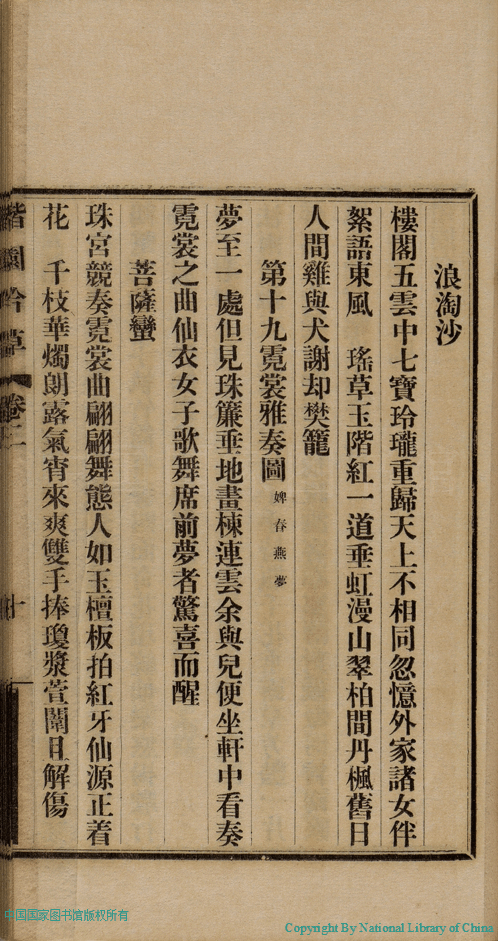 浪淘沙
樓閣五雲中七寶玲瓏重歸天上不相同忽憶外家諸女伴
絮語東風　瑤草玉階紅一道垂虹漫山翠柏間丹楓舊日
人間雞與犬謝却樊籠
第十九霓裳雅奏圖婢春燕夢
夢至一處但見珠簾垂地畫棟連雲余與兒便坐軒中看奏
霓裳之曲仙衣女子歌舞席前夢者驚喜而醒
菩薩蠻
珠宮競奏霓裳曲翩翩舞態人如玉檀板拍紅牙仙源正着
花　千枝華燭朗露氣宵來爽雙手捧瓊漿萱闈且解傷
園吟草 卷二
十
中国国家图书馆版权所有
Copyright By National Library of China